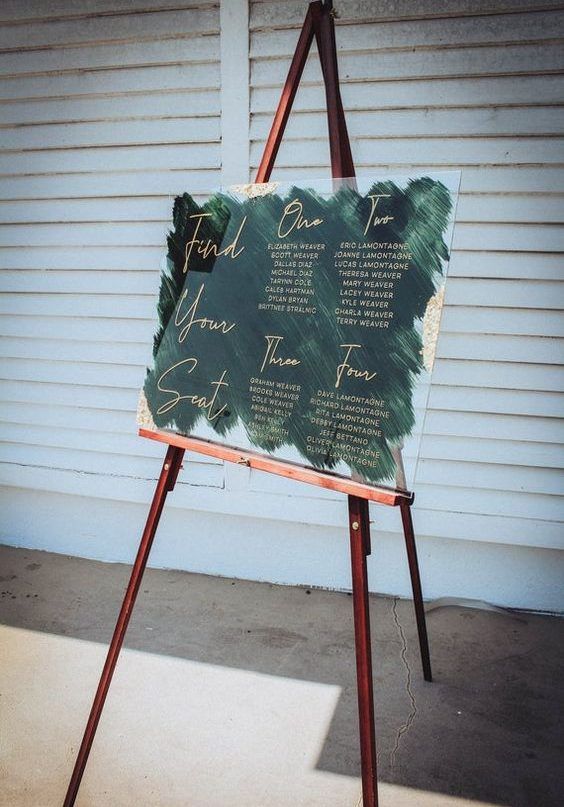 Find
Your
Seat
One
ELIZABETH WEAVER
SCOTT WEAVER
DALLAS DIAZ
MICHAEL DIAZ
TARYNN COLE
CALEB HARTMAN
DYLAN BRYAN
BRITTNEE STRALNIC
Two
ERIC LAMONTAGNE
JOANNE LAMONTAGNE
LUCAS LAMONTAGNE
THERESA WEAVER
MARY WEAVER
LACEY WEAVER
KYLE WEAVER
CHARLA WEAVER
TERRY WEAVER
Three
GRAHAM WEAVER
BROOKS WEAVER
COLE WEAVER
ABIGAIL KELLY
SMITH
SMITH
Four
DAVE LAMONTAGNE
RICHARD LAMONTAGNE
RITA LAMONTAGNE
DEBBY LAMONTAGNE
JEFF BETTANO
OLIVER LAMONTAGNE
OLIVIA LAMONTAGNE